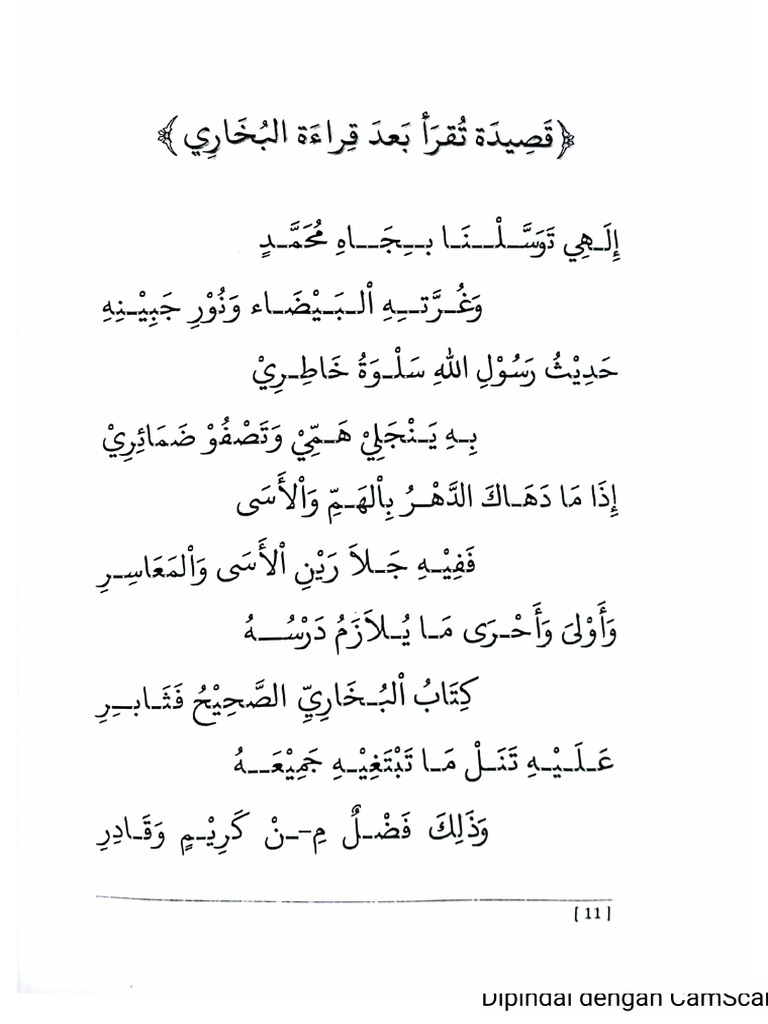 ﴿قَصِيدَة تُقرَأ بَعدَ قِراءَة البُخَارِي﴾
إِلَـهِي تَوَسَّلْـنَـا بِـجَـاهِ مُحَمَّـدٍ
وَغُـرَّتـِهِ اْلـبَـيْضَـاء وَنُوْرِ جَبِيْـنِهِ
حَدِيْثُ رَسُوْلِ اللهِ سَلْـوَةُ خَاطِـرِيْ
بِـهِ يَـنْجَلِيْ هَـمِّيْ وَتَصْفُوْ ضَمَائِرِيْ
إِذَا مَا دَهَـاكَ الدَّهْـرُ بِاْلهَـمِّ وَاْلأَسَى
فَفِيْـهِ جَـلاَ رَيْنِ اْلأَسَى وَاْلمَعَاسِـرِ
وَأَوْلىَ وَأَحْـرَى مَـا يُـلاَزَمُ دَرْسُـهُ
كِتَابُ اْلبُـخَارِيِّ الصَّحِيْحُ فَثَـابِـرِ
عَـلَـيْـهِ تَنَـلْ مَـا تَبْتَغِيْـهِ جَمِيْعَـهُ
وَذَلِكَ فَضْـلٌ مِ-ـنْ كَرِيْـمٍ وَقَـادِرِ
[ 11 ]
Dipindai dengan CamScan